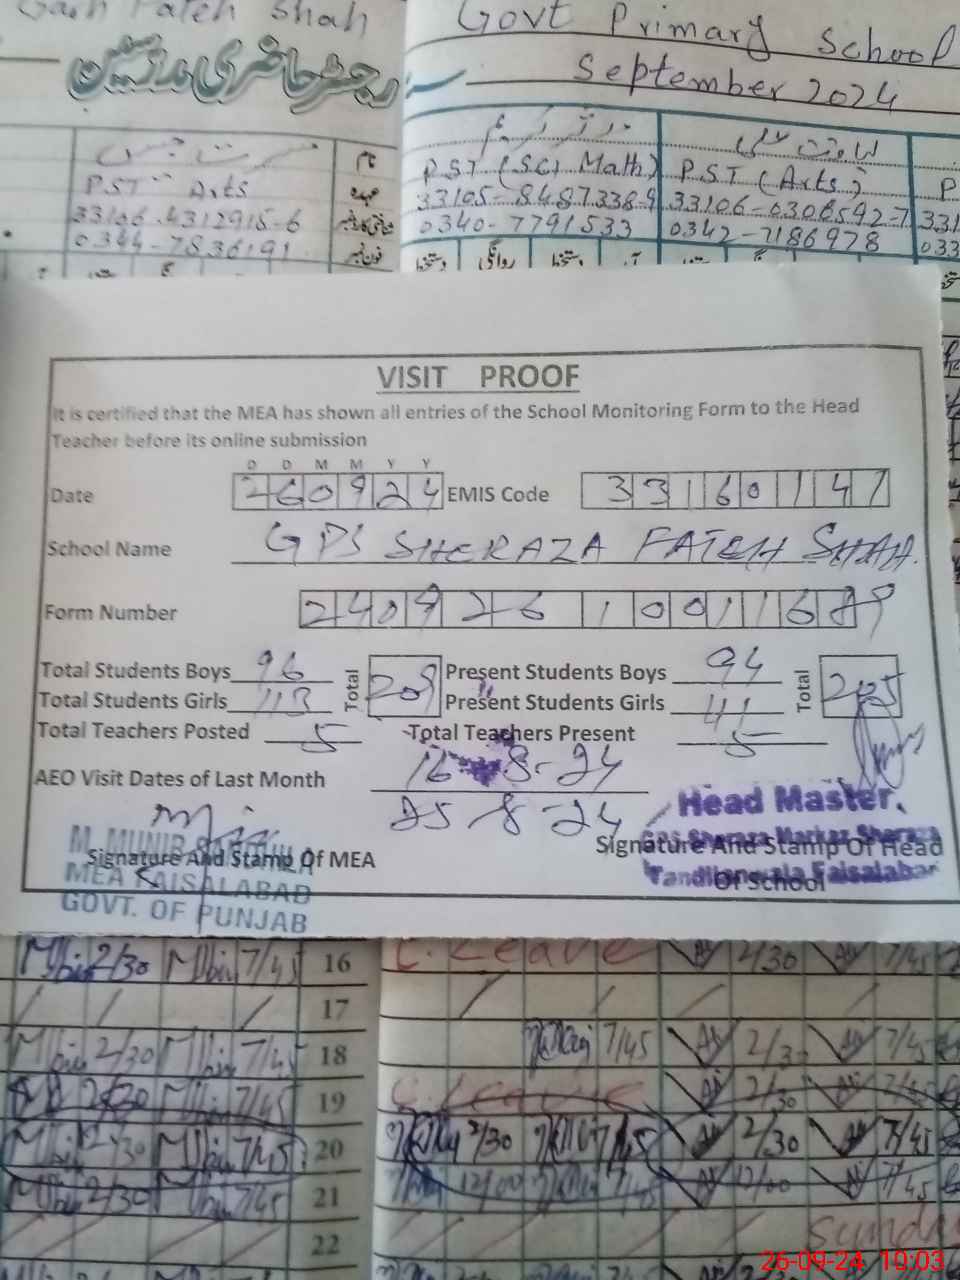 Garh Fateh Shah
Govt Primary School
September 2024
رجسٹر حاضری مدرسین
نام
PST Arts
عہدہ
33106-4312915-6
شناختی کارڈ نمبر
0344-7836191
فون نمبر
PST (Sci Math)
33105-8487338-9
0340-7791533
PST (Arts)
33106-0306592-7
0342-7186978
P
331
033
دستخط روانگی دستخط
VISIT PROOF
It is certified that the MEA has shown all entries of the School Monitoring Form to the Head
Teacher before its online submission
D D M M Y Y
Date 260924 EMIS Code 33160147
School Name GPS SHERAZA FATEH SHAH.
Form Number 240926100111689
Total Students Boys 96 Total 209 Present Students Boys 94 Total 205
Total Students Girls 113 Present Students Girls
Total Teachers Posted 5 Total Teachers Present 5
AEO Visit Dates of Last Month 16-8-24
25-8-24
Head Master.
GPS Sheraza Markaz Sheraza
Tandlianwala Faisalabad
Signature And Stamp Of Head
Of School
M. MUNIR
Signature And Stamp Of MEA
MEA FAISALABAD
GOVT. OF PUNJAB
2/30 7/45 16 C. Leave 2/30 7/45
17
2/30 7/45 18 7/45 2/30 7/45
2/30 7/45 19 C. Leave 2/30 7/45
2/30 7/45 20 2/30 7/45 2/30 7/45
2/30 7/45 21 12/00 7/45 12/00 7/45
22 Sunday
26-09-24 10:03